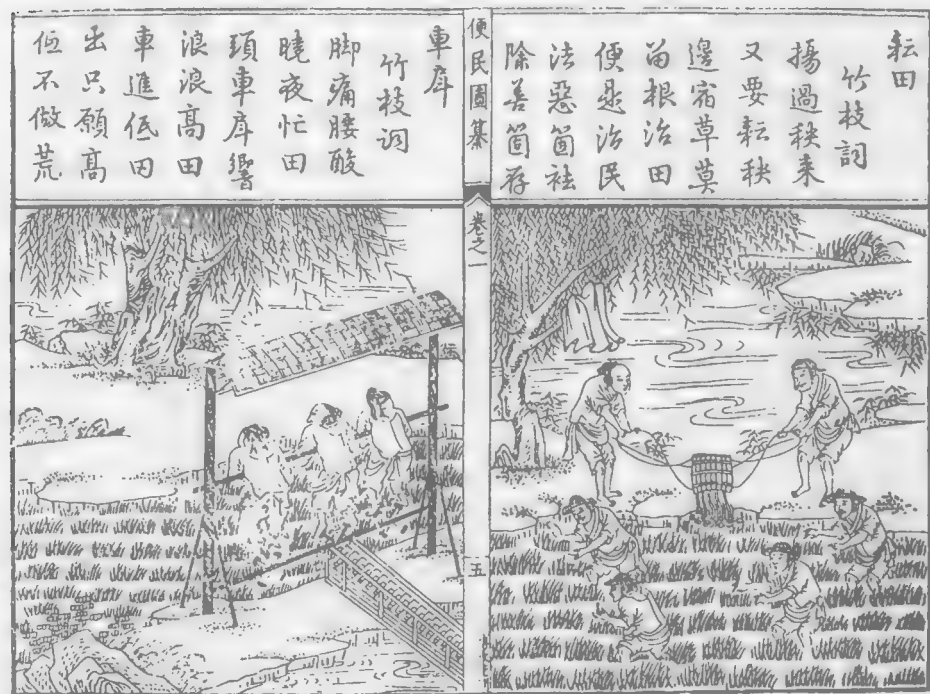 耘田
竹枝詞
揚過秧来
又要耘秧
邊宿草莫
留根治田
便是治民
法惡箇祛
除善箇存
便民圖纂
卷之一
五
車戽
竹枝詞
脚痛腰酸
曉夜忙田
頭車戽響
浪浪高田
車進低田
出只願高
低不做荒